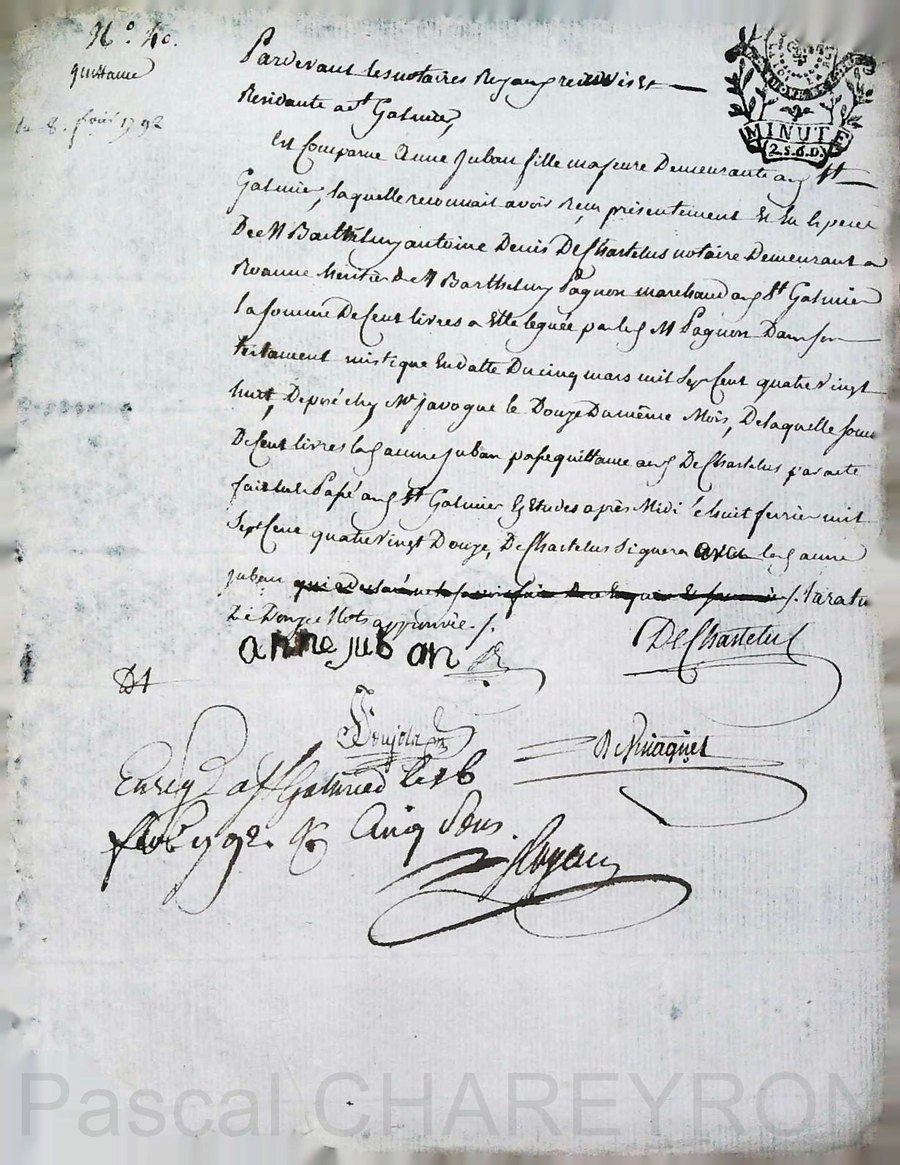 N.o 40.
quittance
8. fevr 1792
MINUTE
2.S.6.D.
Pardevant les notaires Royaux
Residants a St Galmier,
Est Comparue Anne Juban fille majeure Demeurante aud St
Galmier, laquelle reconnait avoir Reçu présentement
De Mr Barthelmy antoine Denis De Chastelus notaire Demeurant a
Roanne heritier de Mr Barthelmy Pagnon marchand aud St Galmier
la somme De Cent livres a Elle leguée par led Mr Pagnon Dans son
testament mistique En datte Du cinq mars mil Sept Cent quatre vingt
huit, Deposé chez Me Javogue le Douze Du même Mois, De laquelle som
De Cent livres lad anne Juban passe quittance aud De Chastelus par acte
fait Lu et Passé aud St Galmier Ez Etudes après Midi le huit fevrier mil
Sept Cent quatre Vingt Douze, De Chastelus Signera avec lad anne
Juban /. la ratu
De Douze Mots approuvée. /.
anne juban
De Chastelus
D1
Enreg a St Galmier le 16
fevr 1792. Cinq Sous.
Pascal CHAREYRON